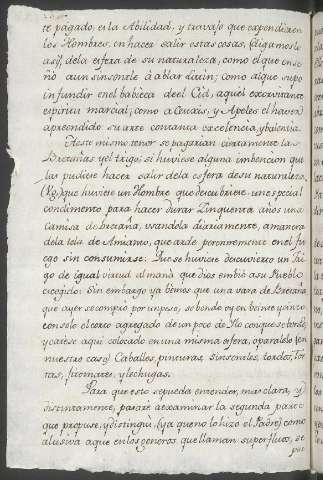 te pagado, es la Abilidad, y travajo que expendieren
los Hombres, en hacer salir estas cosas, (digamoslo
asi) de la esfera de su naturaleza, como el que ense
ñó a un sinsonte à ablar latin; como al que supo
infundir en el babieca de el Cid, aquel
espiritu marcial; como a Ceuxis, y Apeles el haver
aprendido su arte con tanta excelencia, y balentia.
A este mismo tenor se pagarian ciertamente las
Bretañas y el trigo, si huviese alguna imbencion que
las pudiese hacer salir de la esfera de su naturaleza
que huviese un Hombre que descubriese un especial
condimento para hacer durar Cinquenta años una
Camisa de bretaña, usandola diariamente, a manera
de la tela de Amianto, que arde perennemente en el fu
ego sin consumirse: Que se huviese descuvierto un tri
go de igual virtud al maná que Dios embió a su Pueblo
escogido: Sin embargo ya bemos que una vara de Bretaña
que ayer se compró por un peso, se bende oy en beinte y cinco
con solo el corto agregado de un poco de Ylo con que se borde,
y catese aqui colocado en una misma esfera, o paralelo (en
nuestro caso) Caballos, pinturas, sinsontes, tordos,
tas, y lechugas.
Para que esto se pueda entender, mas clara, y
distintamente, pasaré a examinar la segunda parte
que propuse, y distingui, (ya que no lo hizo el Padre) como
alusiva a que en los generos que llaman superfluos, se
pue